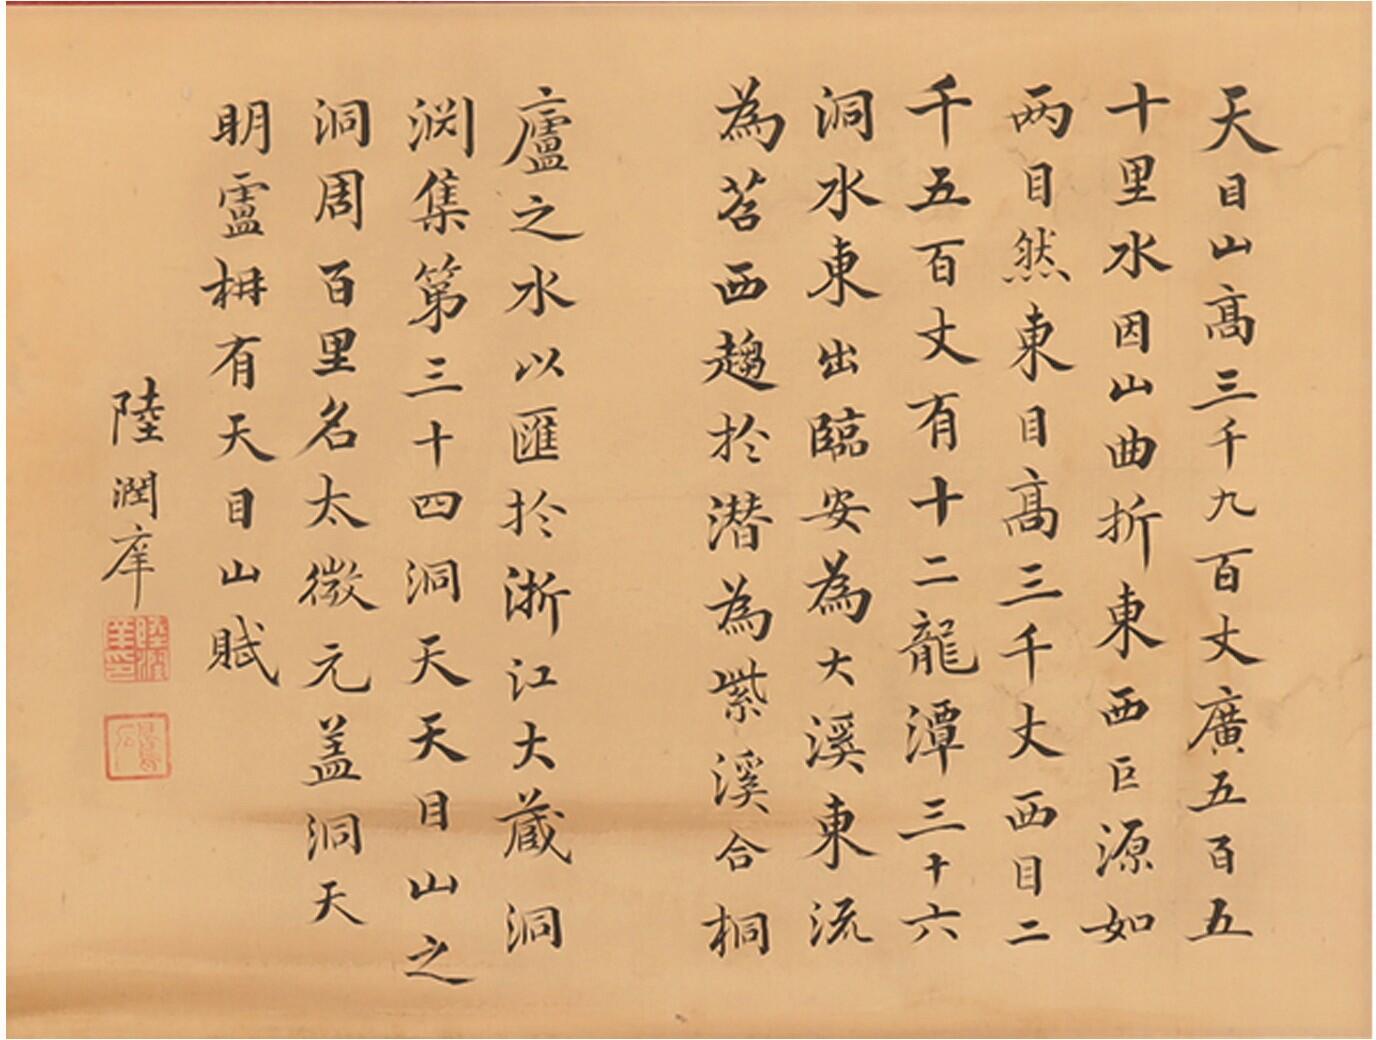 天目山高三千九百丈廣五百五
十里水因山曲折東西巨源如
兩目然東目高三千丈西目二
千五百丈有十二龍潭三十六
洞水東出臨安為大溪東流
為苕西趨於潛為紫溪合桐
廬之水以匯於浙江大蔵洞
渕集第三十四洞天天目山之
洞周百里名太微元盖洞天
明盧柟有天目山賦
陸潤庠